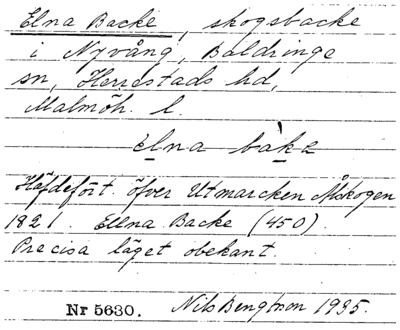 Elna Backe, skogsbacke
i Nyvång, Baldringe
sn, Herrestads hd,
Malmöh. l.
elna bàkɛ
Häfdefört. öfver Utmarcken Åskogen
1821. Ellna Backe (450).
Precisa läget obekant.
Nr 5630. Nils Bengtson 1935.